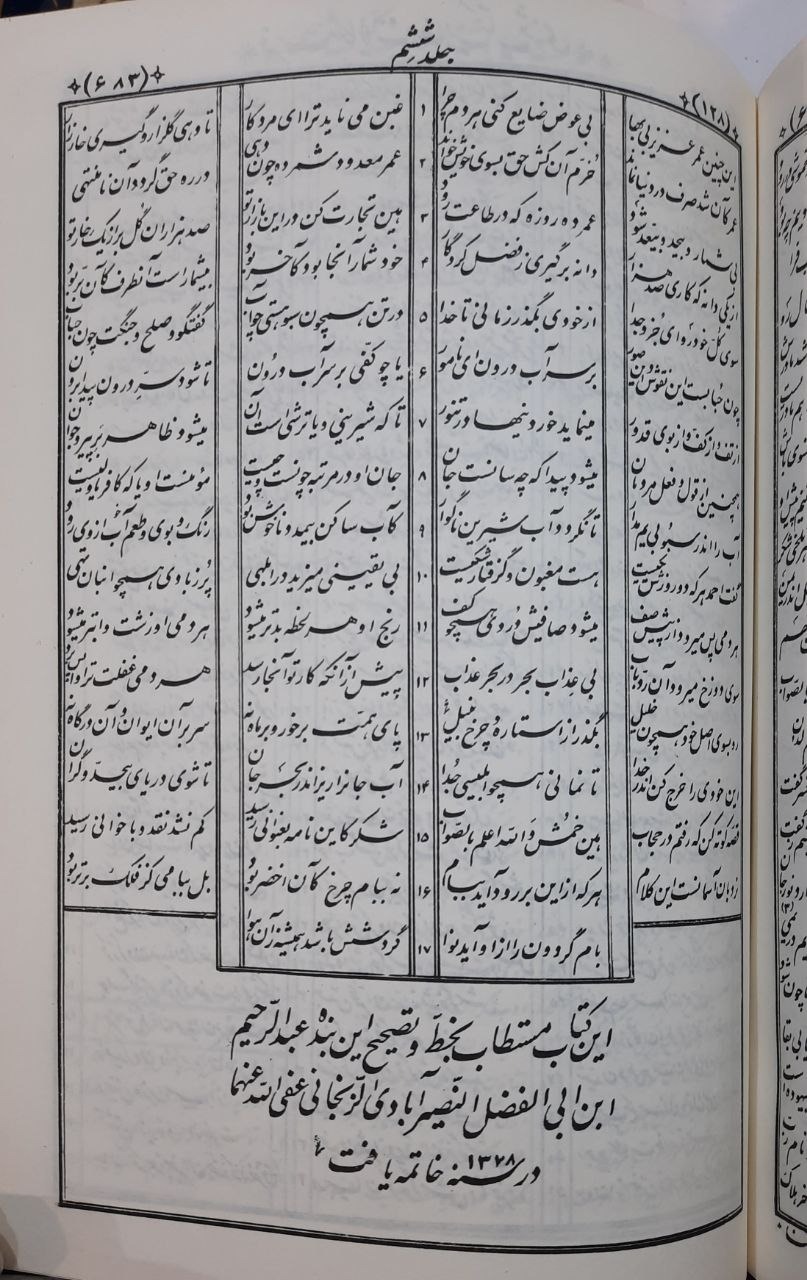 جلد ششم
(۱۲۸)
(۶۸۳)
این چنین عمر عزیز بی بها بی عوض ضایع کنی هر دم چرا ۱ غبن می ناید ترا ای مرد کار تا دهی گلزار و گیری خارزار
عمر کآن شد صرف در دنیا نماند خرّم آن کش حق بسوی خویش خواند ۲ عمر معدود و شمرده چون دهی در ره حق گردد آن نامنتهی
بی شمار و بیحد و بیعد شود عمر ده روزه که در طاعت رود ۳ هین تجارت کن در این بازار تو صد هزاران گل بر از یک خار تو
از یکی دانه که کاری صد هزار دانه برگیری ز فضل کردگار ۴ خود شمار اینجا بود کآخر بود بیشمار است آنطرف کآن بر بود
سوی کل خود رو ای جزو جدا از خودی بگذر زمانی تا خدا ۵ در تن همچون سبو هستی چو آب گفتگو و صلح و جنگت چون حباب
چون حبابست این نقوش و این صور بر سر آب درون ای نامور ۶ یا چو کفّی بر سر آب درون تا شود سرّ درون پیدا برون
از تف و از کف و از بوی قدور مینماید خوردنیها در تنور ۷ تا که شیرینی و یا ترشی است آن میشود ظاهر بر پیر و جوان
همچنین از قول و فعل مردمان میشود پیدا که چه سانست جان ۸ جان او در مرتبه چونست و چیست مؤمنست او یا که کافر یا ولیست
آب را اندر سبو بی یم مدار تا نگردد آب شیرین ناگوار ۹ کآب ساکن بیمدد ناخوش بود رنگ و بوی و طعم آب از وی رود
گفت احمد هر که دو روزش یکیست هست مغبون و گرفتار شکیست ۱۰ بی یقینی میزید در ابلهی پر ز بادی همچو انبان تهی
هر دمی پس میرود از پیش صف میشود صافیش دردی همچو کف ۱۱ رنج او هر لحظه بدتر میشود هر دمی او زشت و ابتر میشود
سوی دوزخ میرود آن ردّ باب بی عذاب بحر در بحر عذاب ۱۲ پیش از آنکه کار تو آنجا رسد هر دمی غفلت ترا واپس
رو بسوی اصل خود همچون خلیل بگذر از استاره و چرخ نبیل ۱۳ پای همّت بر خور و بر ماه نه سر بر آن ایوان و آن درگاه نه
این خودی را خرج کن اندر خدا تا نمانی همچو ابلیسی جدا ۱۴ آب جانرا ریز اندر بحر جان تا شوی دریای بیحدّ و کران
قصه کوته کن که رفتم در حجاب هین خمش والله اعلم بالصواب ۱۵ شکر کاین نامه بعنوانی رسید کم نشد نقد و باخوانی رسید
نردبان آسمانست این کلام هر که از این بر رود آید ببام ۱۶ نه ببام چرخ کآن اخضر بود بل ببامی کز فلک برتر بود
بام گردون را از او آید نوا ۱۷ گردشش باشد همیشه زآن هوا
این کتاب مستطاب بخطّ و تصحیح این بنده عبدالرّحیم
ابن ابی الفضل النّصیرآبادی الزّنجانی عفی الله عنهما
در سنه ۱۳۷۸ خاتمه یافت